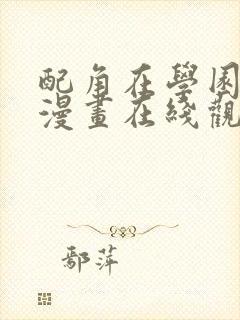 配角在學园
漫畫在綫觀
鄢萍